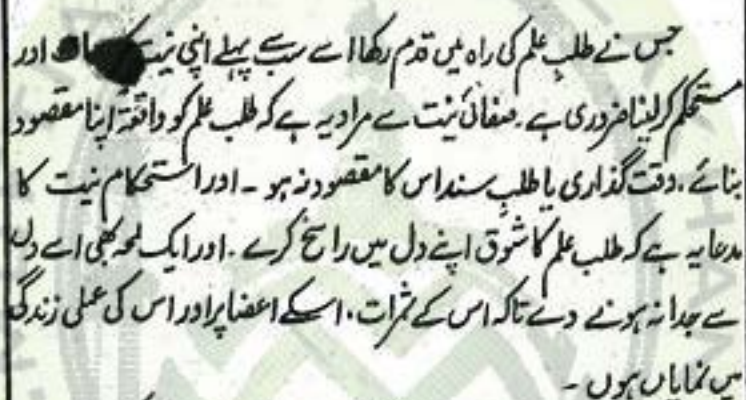 جس نے طلبِ علم کی راہ میں قدم رکھا اسے سب سے پہلے اپنی نیت اور
مستحکم کرلینا ضروری ہے ۔ صفائی نیت سے مراد یہ ہے کہ طلب علم کو واقعۃً اپنا مقصود
بنائے ، وقت گذاری یا طلبِ سند اس کا مقصود نہ ہو ۔ اور استحکام نیت کا
مدعا یہ ہے کہ طلب علم کا شوق اپنے دل میں راسخ کرے . اور ایک لمحہ بھی اسے دل
سے جدا نہ ہونے دے تاکہ اس کے ثمرات ، اسکے اعضا پر اور اس کی عملی زندگی
میں نمایاں ہوں ۔